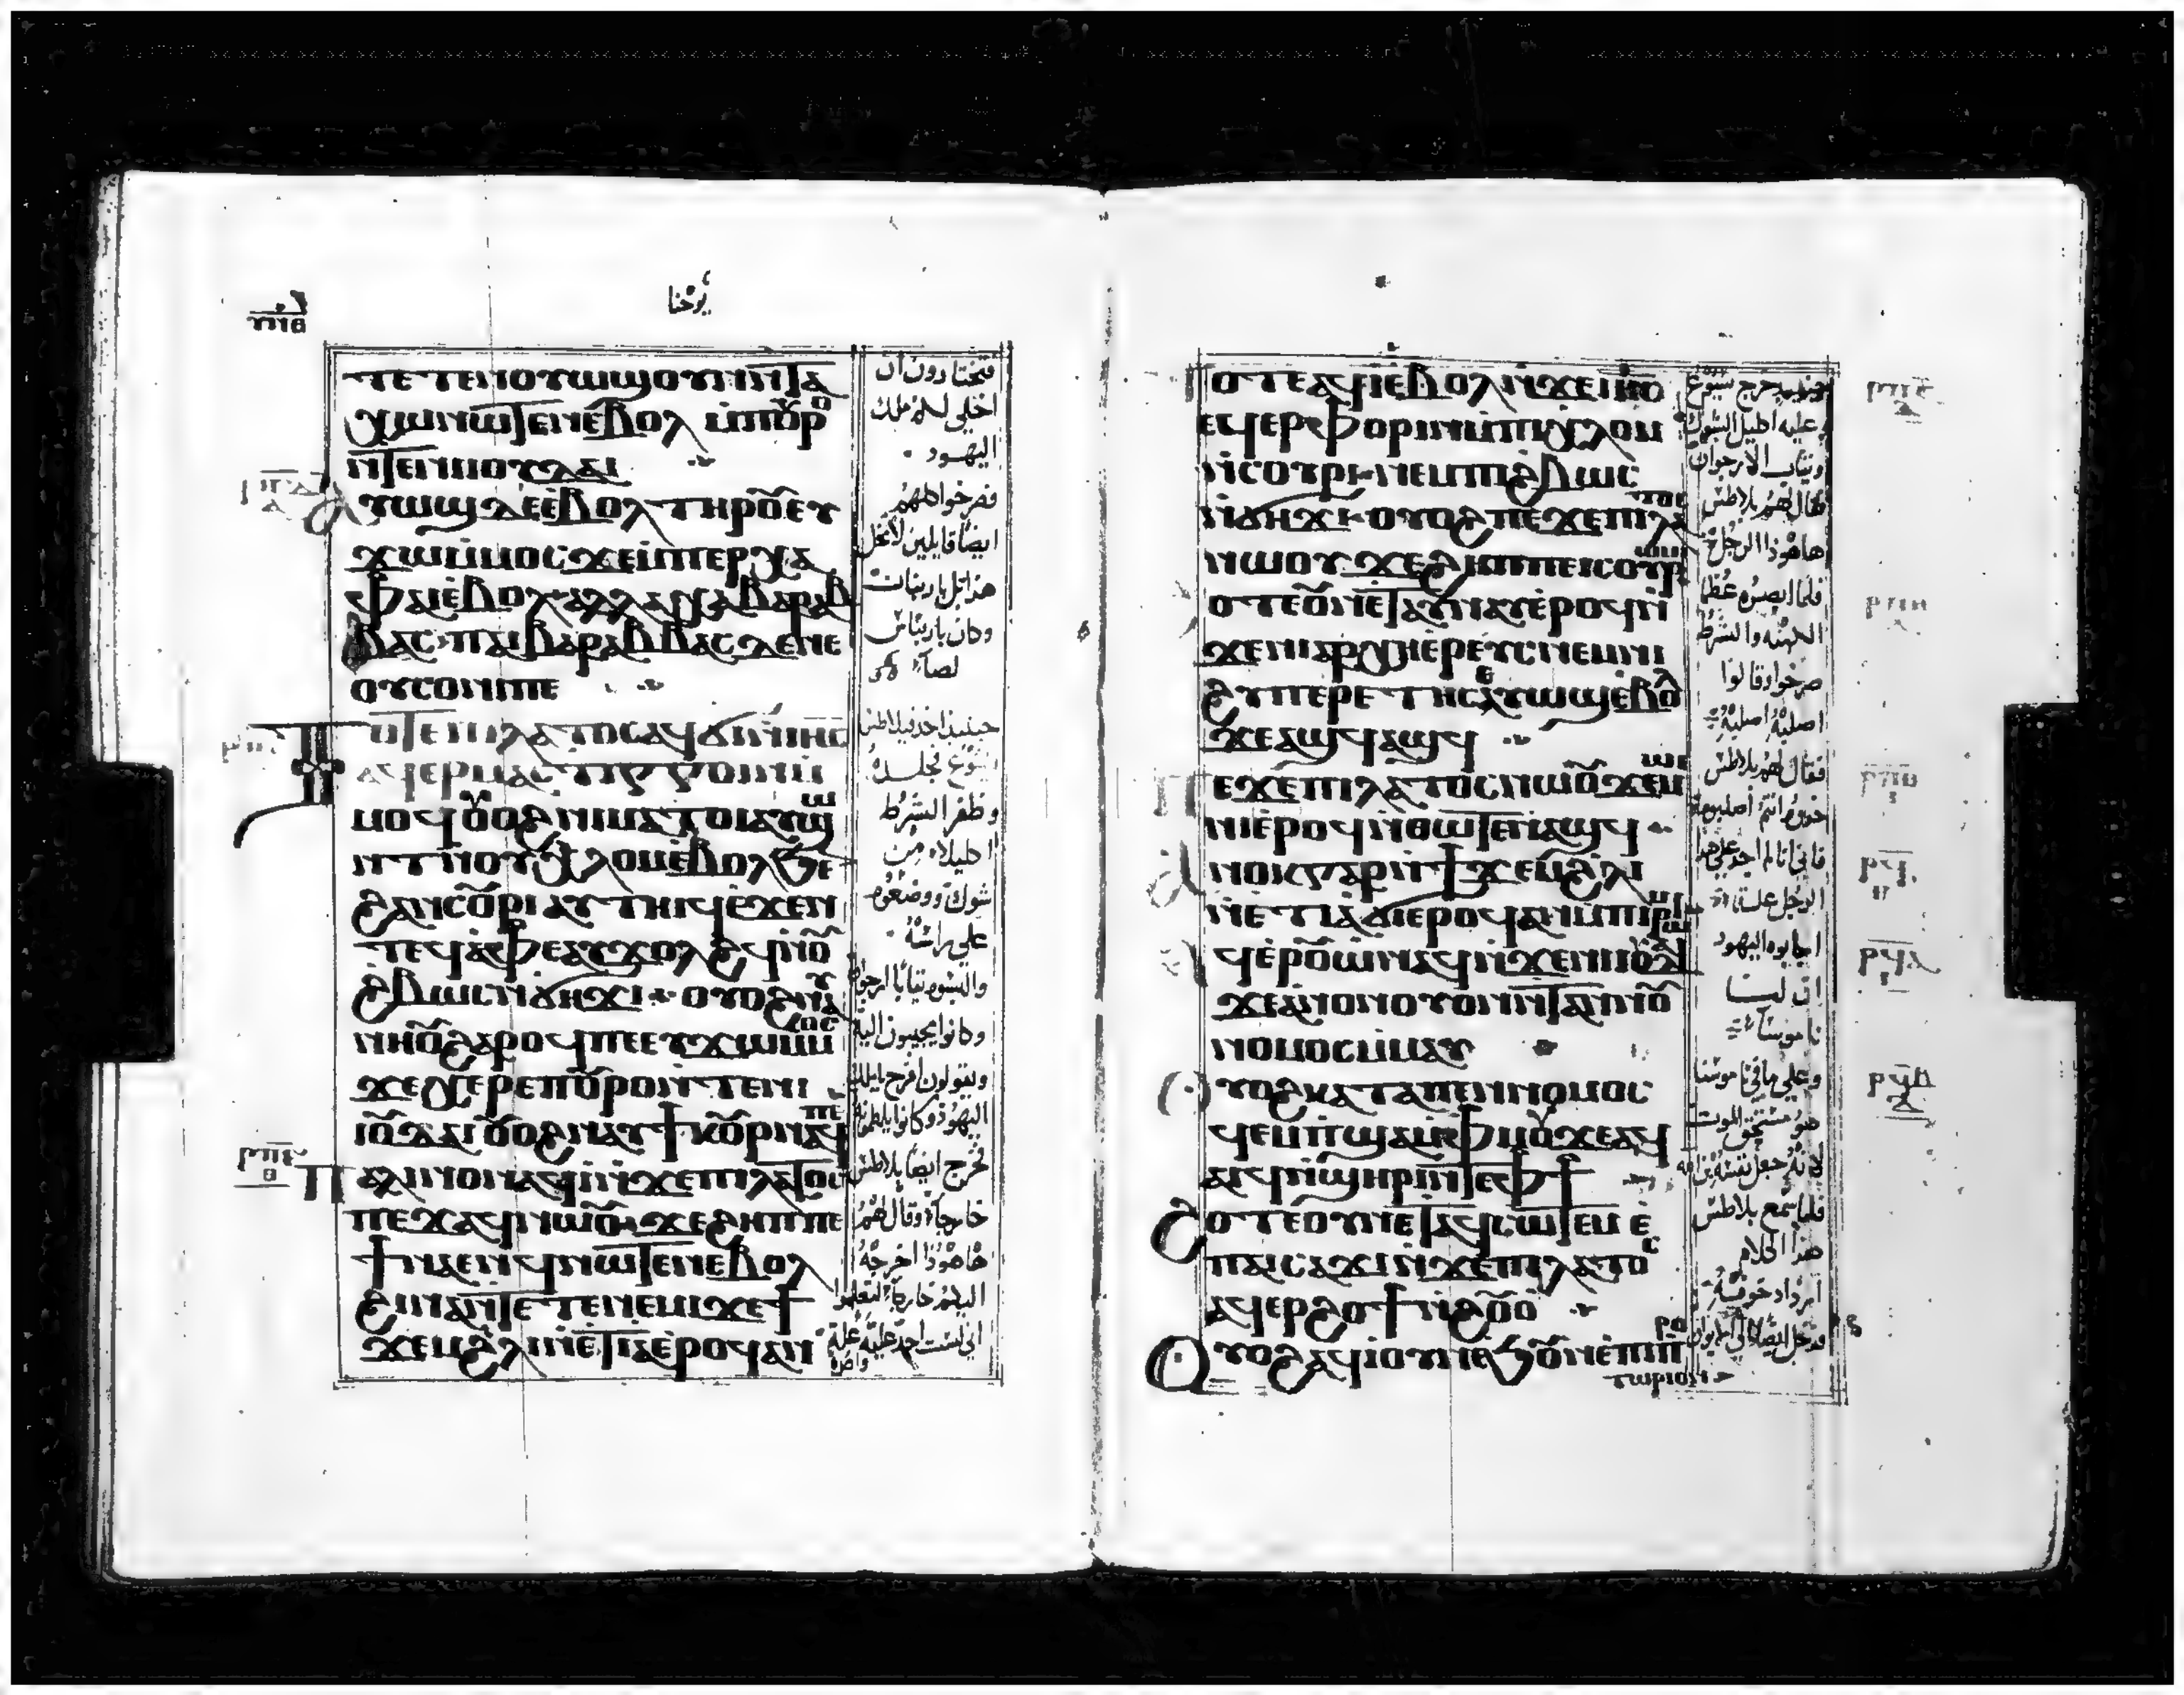 يوحنا
ⲧⲉⲧⲉⲛⲟⲩⲱϣⲟⲩⲛ ⲛⲧⲁ
ⲭⲱ ⲛⲱⲧⲉⲛ ⲉⲃⲟⲗ ⲙⲡⲟⲩⲣⲟ
ⲛⲧⲉ ⲛⲓⲓⲟⲩⲇⲁⲓ
ⲁⲩⲱϣ ⲇⲉ ⲉⲃⲟⲗ ⲧⲏⲣⲟⲩ ⲉⲩ
ϫⲱ ⲙⲙⲟⲥ ϫⲉ ⲙⲡⲉⲣⲭⲁ
ⲫⲁⲓ ⲉⲃⲟⲗ ⲁⲗⲗⲁ ⲭⲁ ⲃⲁⲣⲁⲃ
ⲃⲁⲥ ⲡⲁⲓ ⲃⲁⲣⲁⲃⲃⲁⲥ ⲇⲉ ⲛⲉ
ⲟⲩⲥⲟⲛⲓ ⲡⲉ
ⲡⲓⲗⲁⲧⲟⲥ ⲁϥϭⲓ ⲛⲓⲏⲥ
ⲁϥⲉⲣⲙⲁⲥⲧⲓⲅⲅⲟⲓⲛ ⲙ
ⲙⲟϥ ⲟⲩⲟϩ ⲛⲓⲙⲁⲧⲟⲓ ⲁⲩϣⲱ
ⲛⲧ ⲛⲟⲩⲭⲗⲟⲙ ⲉⲃⲟⲗ ϧⲉⲛ
ϩⲁⲛⲥⲟⲩⲣⲓ ⲁⲩⲧⲏⲓϥ ⲉϫⲉⲛ
ⲧⲉϥⲁⲫⲉ ⲁⲩϫⲟⲗϩϥ ⲛⲟⲩ
ϩⲃⲱⲥ ⲛϭⲏϫⲓ ⲟⲩⲟϩ ⲛⲁⲩ
ⲛⲏⲟⲩ ϩⲁⲣⲟϥ ⲡⲉ ⲉⲩϫⲱ ⲙⲙⲟⲥ
ϫⲉ ⲭⲉⲣⲉ ⲡⲟⲩⲣⲟ ⲛⲧⲉ ⲛⲓ
ⲓⲟⲩⲇⲁⲓ ⲟⲩⲟϩ ⲛⲁⲩϯ ⲕⲟⲩⲣ ⲛⲁϥ ⲡⲉ
ⲡⲁⲗⲓⲛ ⲟⲛ ⲁϥⲓ ⲛϫⲉ ⲡⲓⲗⲁⲧⲟⲥ
ⲡⲉϫⲁϥ ⲛⲱⲟⲩ ϫⲉ ϩⲏⲡⲡⲉ
ϯⲛⲁⲉⲛϥ ⲛⲱⲧⲉⲛ ⲉⲃⲟⲗ
ϩⲓⲛⲁ ⲛⲧⲉⲧⲉⲛⲉⲙⲓ ϫⲉ ϯ
ϫⲉⲙ ϩⲗⲓ ⲛⲉⲧⲓⲁ ⲉⲣⲟϥ ⲁⲛ
فتختارون ان
اخلي لكم ملك
اليهود
فصرخوا كلهم
ايضا قايلين لا تخل
هذا بل باربان
وكان باربان
لصا
حينيذ اخذ فيلاطس
يسوع فجلده
وظفر الشرط
اكليلا من
شوك ووضعوه
على راسه
والبسوه ثيابا ارجوان
وكانوا يجيبون اليه
ويقولون افرح يا ملك
اليهود وكانوا يلطمونه
فخرج ايضا بلاطس
خارجا وقال لهم
هاهوذا اخرجه
اليكم خارجا لتعلموا
اني لست اجد عليه علة
واحدة
ⲧⲟⲧⲉ ⲁϥⲓ ⲉⲃⲟⲗ ⲛϫⲉ ⲓⲏⲥ
ⲉϥⲉⲣⲫⲟⲣⲓⲛ ⲙⲡⲓⲭⲗⲟⲙ
ⲛⲥⲟⲩⲣⲓ ⲛⲉⲙ ⲡⲓϩⲃⲱⲥ
ⲛϭⲏϫⲓ ⲟⲩⲟϩ ⲡⲉϫⲉ ⲡⲓⲗⲁⲧⲟⲥ
ⲛⲱⲟⲩ ϫⲉ ϩⲏⲡⲡⲉ ⲓⲥ ⲡⲓⲣⲱⲙⲓ
ϩⲟⲧⲉ ⲟⲩⲛ ⲉⲧⲁⲩⲛⲁⲩ ⲉⲣⲟϥ ⲛ
ϫⲉ ⲛⲓⲁⲣⲭⲏⲉⲣⲉⲩⲥ ⲛⲉⲙ ⲛⲓ
ϩⲩⲡⲉⲣⲉⲧⲏⲥ ⲁⲩⲱϣ ⲉⲃⲟⲗ
ϫⲉ ⲁϣϥ ⲁϣϥ
ⲡⲉϫⲉ ⲡⲓⲗⲁⲧⲟⲥ ⲛⲱⲟⲩ ϫⲉ
ⲙⲱⲓⲛⲓ ⲉⲣⲟϥ ⲛⲑⲱⲧⲉⲛ ⲁϣϥ
ⲁⲛⲟⲕ ⲅⲁⲣ ⲛϯϫⲉⲙ ϩⲗⲓ
ⲛⲉⲧⲓⲁ ⲉⲣⲟϥ ⲁⲛ ⲙⲡⲓⲣⲱⲙⲓ
ⲁⲩⲉⲣⲟⲩⲱ ⲛⲁϥ ⲛϫⲉ ⲛⲓⲓⲟⲩⲇⲁⲓ
ϫⲉ ⲁⲛⲟⲛ ⲟⲩⲟⲛⲧⲁⲛ ⲛⲟⲩ
ⲛⲟⲙⲟⲥ ⲙⲙⲁⲩ
ⲟⲩⲟϩ ⲕⲁⲧⲁ ⲡⲉⲛⲛⲟⲙⲟⲥ
ϥⲉⲙⲡϣⲁ ⲙⲫⲙⲟⲩ ϫⲉ ⲁϥ
ⲁⲓϥ ⲛϣⲏⲣⲓ ⲛⲧⲉ ⲫϯ
ϩⲟⲧⲉ ⲟⲩⲛ ⲉⲧⲁϥⲥⲱⲧⲉⲙ ⲉ
ⲡⲁⲓⲥⲁϫⲓ ⲛϫⲉ ⲡⲓⲗⲁⲧⲟⲥ
ⲁϥⲉⲣϩⲟϯ ⲛϩⲟⲩⲟ
ⲟⲩⲟϩ ⲁϥⲓ ⲟⲛ ⲉϧⲟⲩⲛ ⲉⲡⲓⲡⲣⲉ
ⲧⲱⲣⲓⲟⲛ
خرج يسوع
عليه اكليل الشوك
وثياب الارجوان
فقال لهم بلاطس
هاهوذا الرجل
فلما ابصره عظما
الكهنه والشرط
صرخوا وقالوا
اصلبه اصلبه
فقال لهم بلاطس
خذوه انتم اصلبوه
فاني انا لم اجد على هذا
الرجل علة
اجابوه اليهود
ان لنا
ناموسا
وعلى ما في ناموسنا
هو مستحق الموت
لانه جعل نفسه ابن الله
فلما سمع بلاطس
هذا الكلام
ازداد خوفه
فدخل ايضا الى الابروطوريون
ⲣⲡⲑ
ⲣϥ
ⲣϥⲁ
ⲣϥⲃ